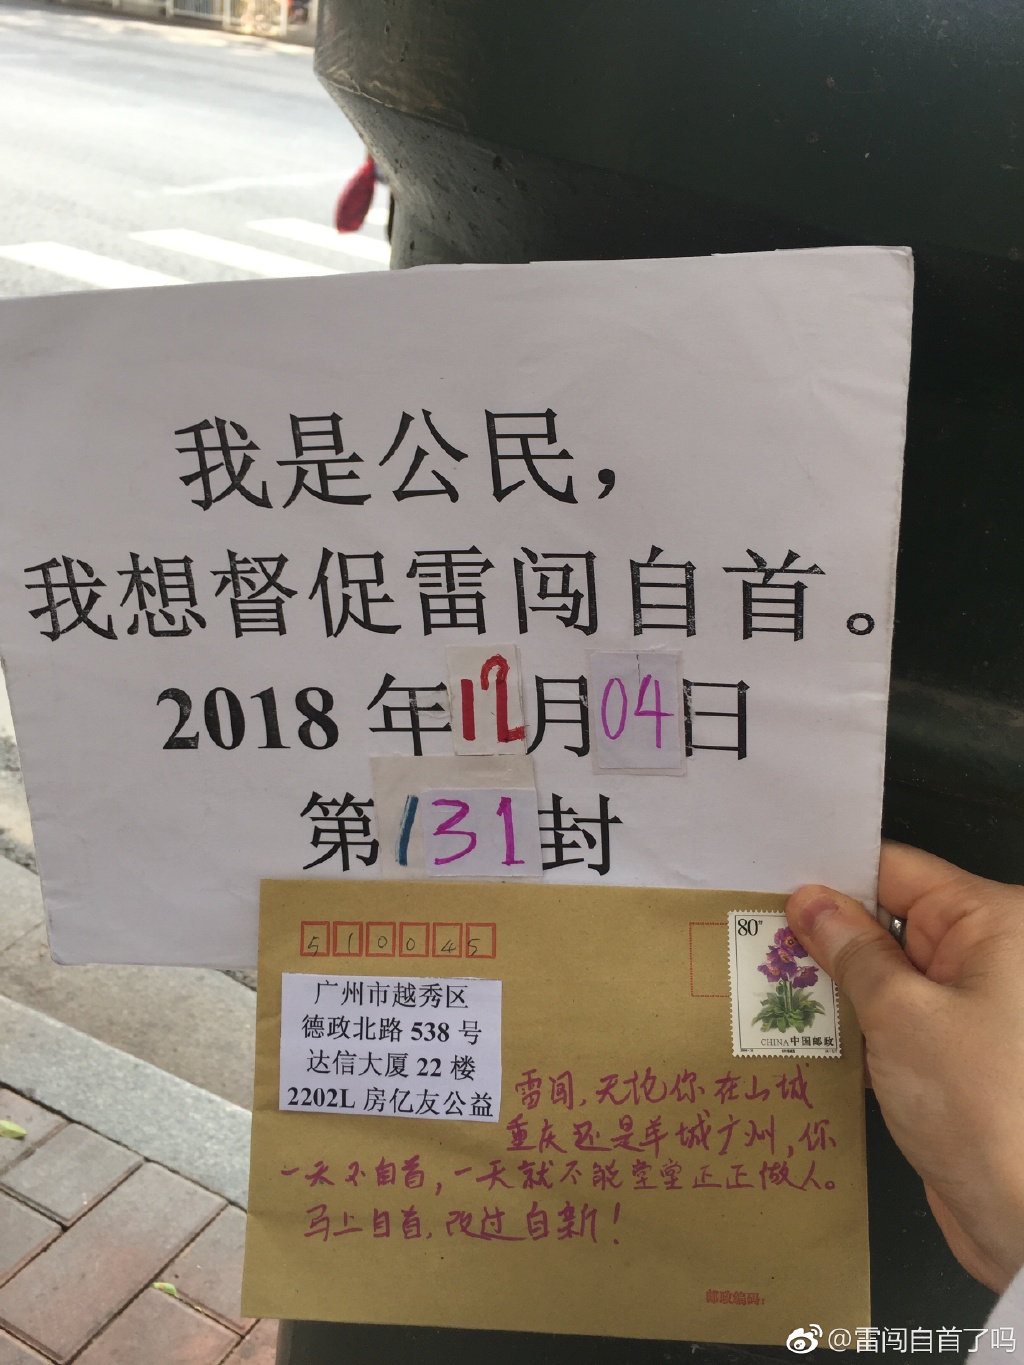 我是公民，
我想督促雷闯自首。
2018年12月04日
第131封
510045
80分
CHINA 中国邮政
广州市越秀区
德政北路 538 号
达信大厦 22 楼
2202L 房亿友公益
雷闯，无论你在山城
重庆还是羊城广州，你
一天不自首，一天就不能堂堂正正做人。
马上自首，改过自新！
邮政编码：
@雷闯自首了吗